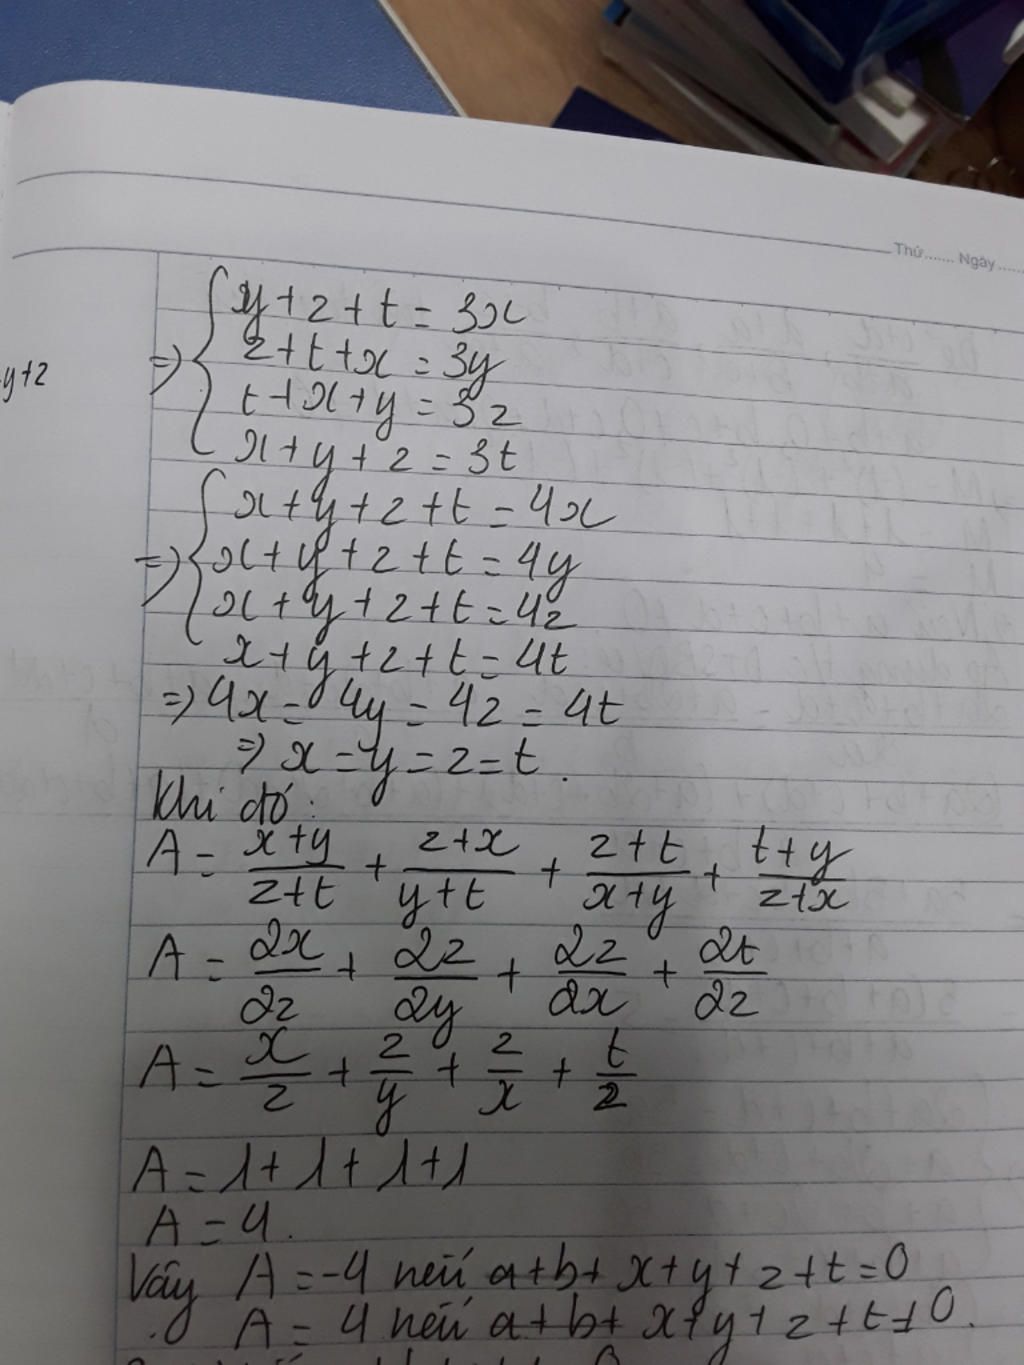 Thứ....... Ngày......
y+z
y+z+t=3x
=> z+t+x=3y
t+x+y=3z
x+y+z=3t
x+y+z+t=4x
=> x+y+z+t=4y
x+y+z+t=4z
x+y+z+t=4t
=> 4x=4y=4z=4t
=> x=y=z=t.
Khi đó:
A = (x+y)/(z+t) + (z+x)/(y+t) + (z+t)/(x+y) + (t+y)/(z+x)
A = 2x/2z + 2z/2y + 2z/2x + 2t/2z
A = x/z + z/y + z/x + t/z
A = 1+1+1+1
A = 4.
Vậy A = -4 nếu a+b+x+y+z+t=0
A = 4 nếu a+b+x+y+z+t≠0.